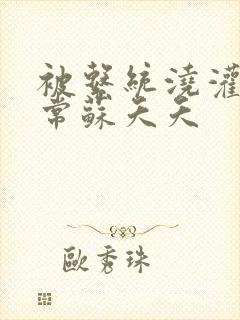 被繫統澆灌
常蘇天天
歐秀珠